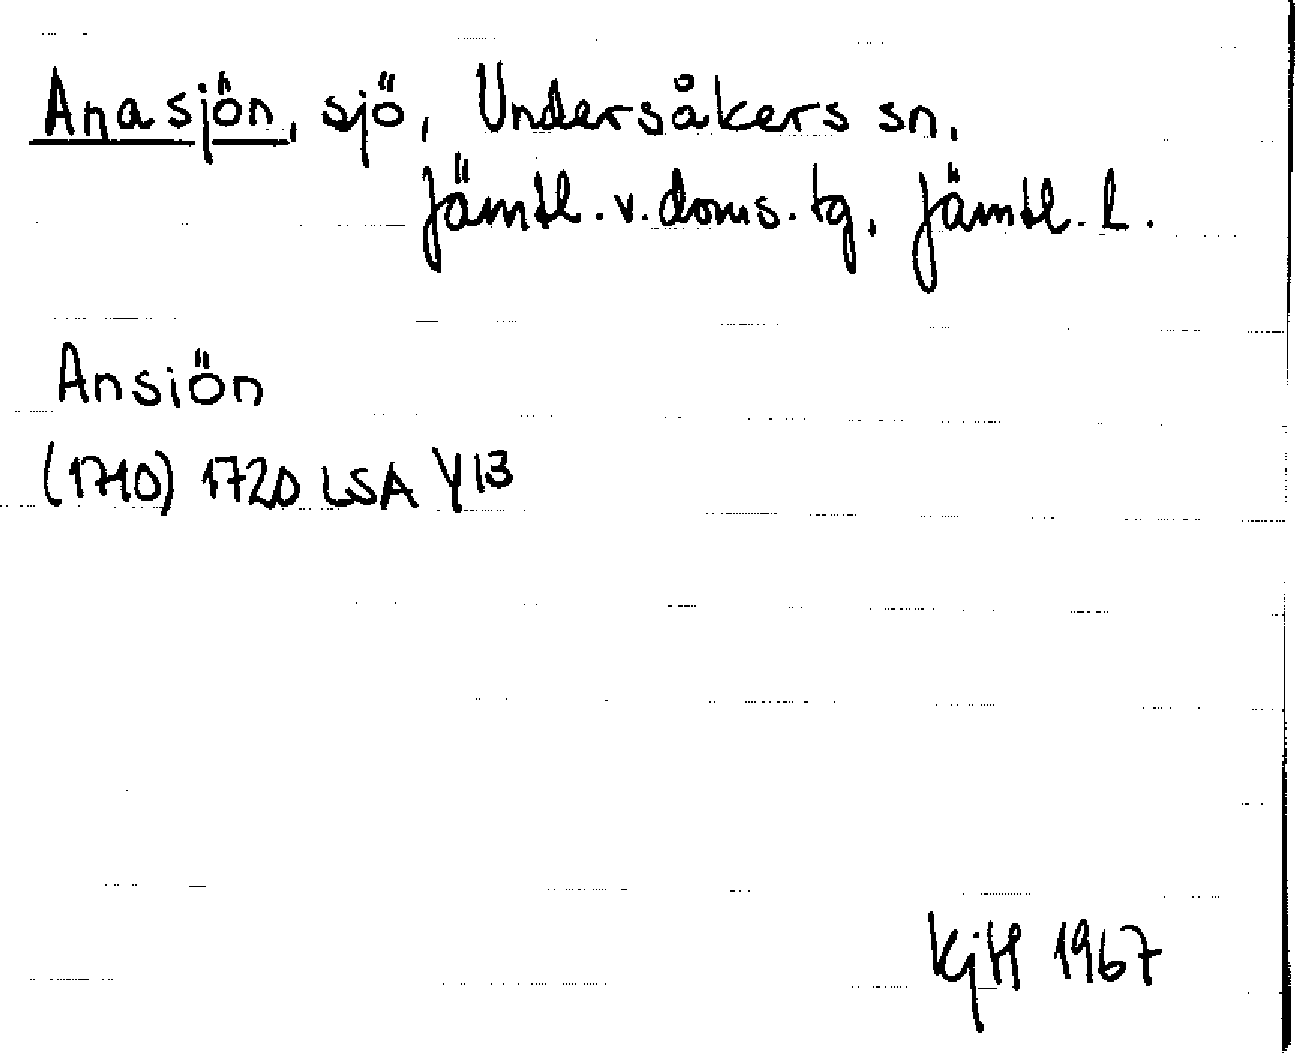 Anasjön, sjö, Undersåkers sn,
Jämtl. v. doms. tg, Jämtl. L.
Ansiön
(1710) 1720 LSA Y13
KjH 1967